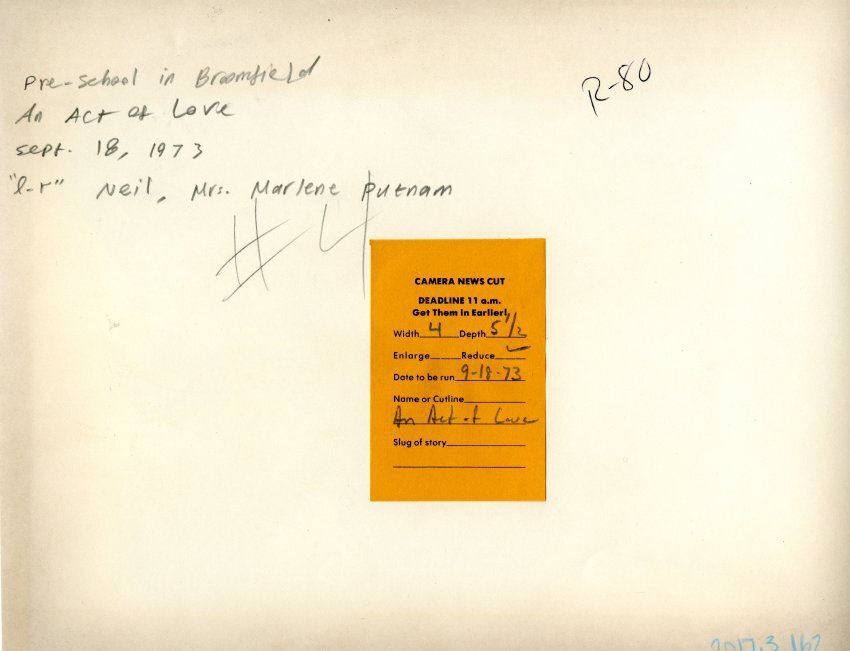 Pre-school in Broomfield
An Act of Love
Sept. 18, 1973
"l-r" Neil, Mrs. Marlene Putnam
#4
R-80
CAMERA NEWS CUT
DEADLINE 11 a.m.
Get Them In Earlier!
Width 4 Depth 5 1/2
Enlarge Reduce ✓
Date to be run 9-18-73
Name or Cutline
An Act of Love
Slug of story
2017.3.162